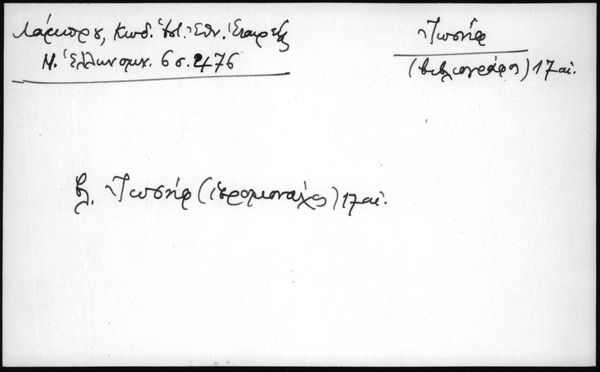 Λάμπρου, Κωδ. Ἱστ. Ἐθν. Ἑταιρείας
Ν. Ἑλληνομν. 6 σ. 476
Ἰωσήφ
(βιβλιογράφος) 17 αἰ.
βλ. Ἰωσήφ (ἱερομοναχος) 17 αἰ.